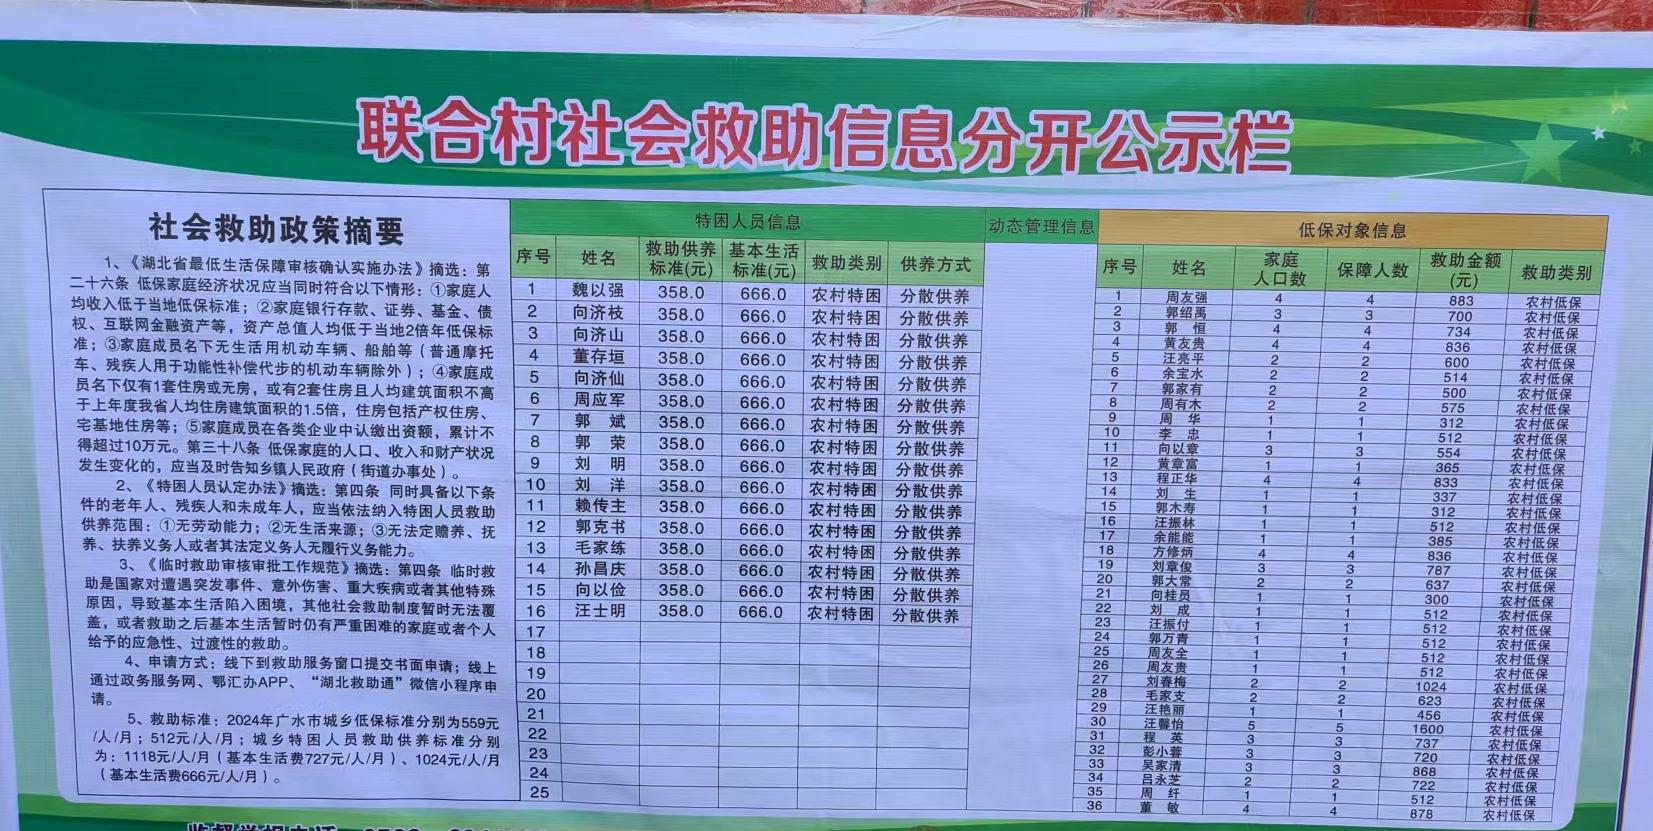 联合村社会救助信息分开公示栏
社会救助政策摘要
1、《湖北省最低生活保障审核确认实施办法》摘选：第
二十六条 低保家庭经济状况应当同时符合以下情形：①家庭人
均收入低于当地低保标准；②家庭银行存款、证券、基金、债
权、互联网金融资产等，资产总值人均低于当地2倍年低保标
准；③家庭成员名下无生活用机动车辆、船舶等（普通摩托
车、残疾人用于功能性补偿代步的机动车辆除外）；④家庭成
员名下仅有1套住房或无房，或有2套住房且人均建筑面积不高
于上年度我省人均住房建筑面积的1.5倍，住房包括产权住房、
宅基地住房等；⑤家庭成员在各类企业中认缴出资额，累计不
得超过10万元。第三十八条 低保家庭的人口、收入和财产状况
发生变化的，应当及时告知乡镇人民政府（街道办事处）。
2、《特困人员认定办法》摘选：第四条 同时具备以下条
件的老年人、残疾人和未成年人，应当依法纳入特困人员救助
供养范围：①无劳动能力；②无生活来源；③无法定赡养、抚
养、扶养义务人或者其法定义务人无履行义务能力。
3、《临时救助审核审批工作规范》摘选：第四条 临时救
助是国家对遭遇突发事件、意外伤害、重大疾病或者其他特殊
原因，导致基本生活陷入困境，其他社会救助制度暂时无法覆
盖，或者救助之后基本生活暂时仍有严重困难的家庭或者个人
给予的应急性、过渡性的救助。
4、申请方式：线下到救助服务窗口提交书面申请；线上
通过政务服务网、鄂汇办APP、“湖北救助通”微信小程序申
请。
5、救助标准：2024年广水市城乡低保标准分别为559元
/人/月；512元/人/月；城乡特困人员救助供养标准分别
为：1118元/人/月（基本生活费727元/人/月）、1024元/人/月
（基本生活费666元/人/月）。
特困人员信息
序号 姓名 救助供养标准(元) 基本生活标准(元) 救助类别 供养方式
1 魏以强 358.0 666.0 农村特困 分散供养
2 向济枝 358.0 666.0 农村特困 分散供养
3 向济山 358.0 666.0 农村特困 分散供养
4 董存垣 358.0 666.0 农村特困 分散供养
5 向济仙 358.0 666.0 农村特困 分散供养
6 周应军 358.0 666.0 农村特困 分散供养
7 郭 斌 358.0 666.0 农村特困 分散供养
8 郭 荣 358.0 666.0 农村特困 分散供养
9 刘 明 358.0 666.0 农村特困 分散供养
10 刘 洋 358.0 666.0 农村特困 分散供养
11 赖传主 358.0 666.0 农村特困 分散供养
12 郭克书 358.0 666.0 农村特困 分散供养
13 毛家练 358.0 666.0 农村特困 分散供养
14 孙昌庆 358.0 666.0 农村特困 分散供养
15 向以俭 358.0 666.0 农村特困 分散供养
16 汪士明 358.0 666.0 农村特困 分散供养
17
18
19
20
21
22
23
24
25
动态管理信息
低保对象信息
序号 姓名 家庭人口数 保障人数 救助金额(元) 救助类别
1 周友强 4 4 883 农村低保
2 郭绍禹 3 3 700 农村低保
3 郭 恒 4 4 734 农村低保
4 黄友贵 4 4 836 农村低保
5 汪亮平 2 2 600 农村低保
6 余宝水 2 2 514 农村低保
7 郭家有 2 2 500 农村低保
8 周有木 2 2 575 农村低保
9 周 华 1 1 312 农村低保
10 李 忠 1 1 512 农村低保
11 向以章 3 3 554 农村低保
12 黄章富 1 1 365 农村低保
13 程正华 4 4 833 农村低保
14 刘 生 1 1 337 农村低保
15 郭木寿 1 1 312 农村低保
16 汪振林 1 1 512 农村低保
17 余能能 1 1 385 农村低保
18 方修炳 4 4 836 农村低保
19 刘章俊 3 3 787 农村低保
20 郭大常 2 2 637 农村低保
21 向桂员 1 1 300 农村低保
22 刘 成 1 1 512 农村低保
23 汪振付 1 1 512 农村低保
24 郭万青 1 1 512 农村低保
25 周友全 1 1 512 农村低保
26 周友贵 1 1 512 农村低保
27 刘春梅 2 2 1024 农村低保
28 毛家支 2 2 623 农村低保
29 汪艳丽 1 1 456 农村低保
30 汪馨怡 5 5 1600 农村低保
31 程 英 3 3 737 农村低保
32 彭小蓉 3 3 720 农村低保
33 吴家清 3 3 868 农村低保
34 吕永芝 2 2 722 农村低保
35 周 纤 1 1 512 农村低保
36 董 敏 4 4 878 农村低保
监督举报电话